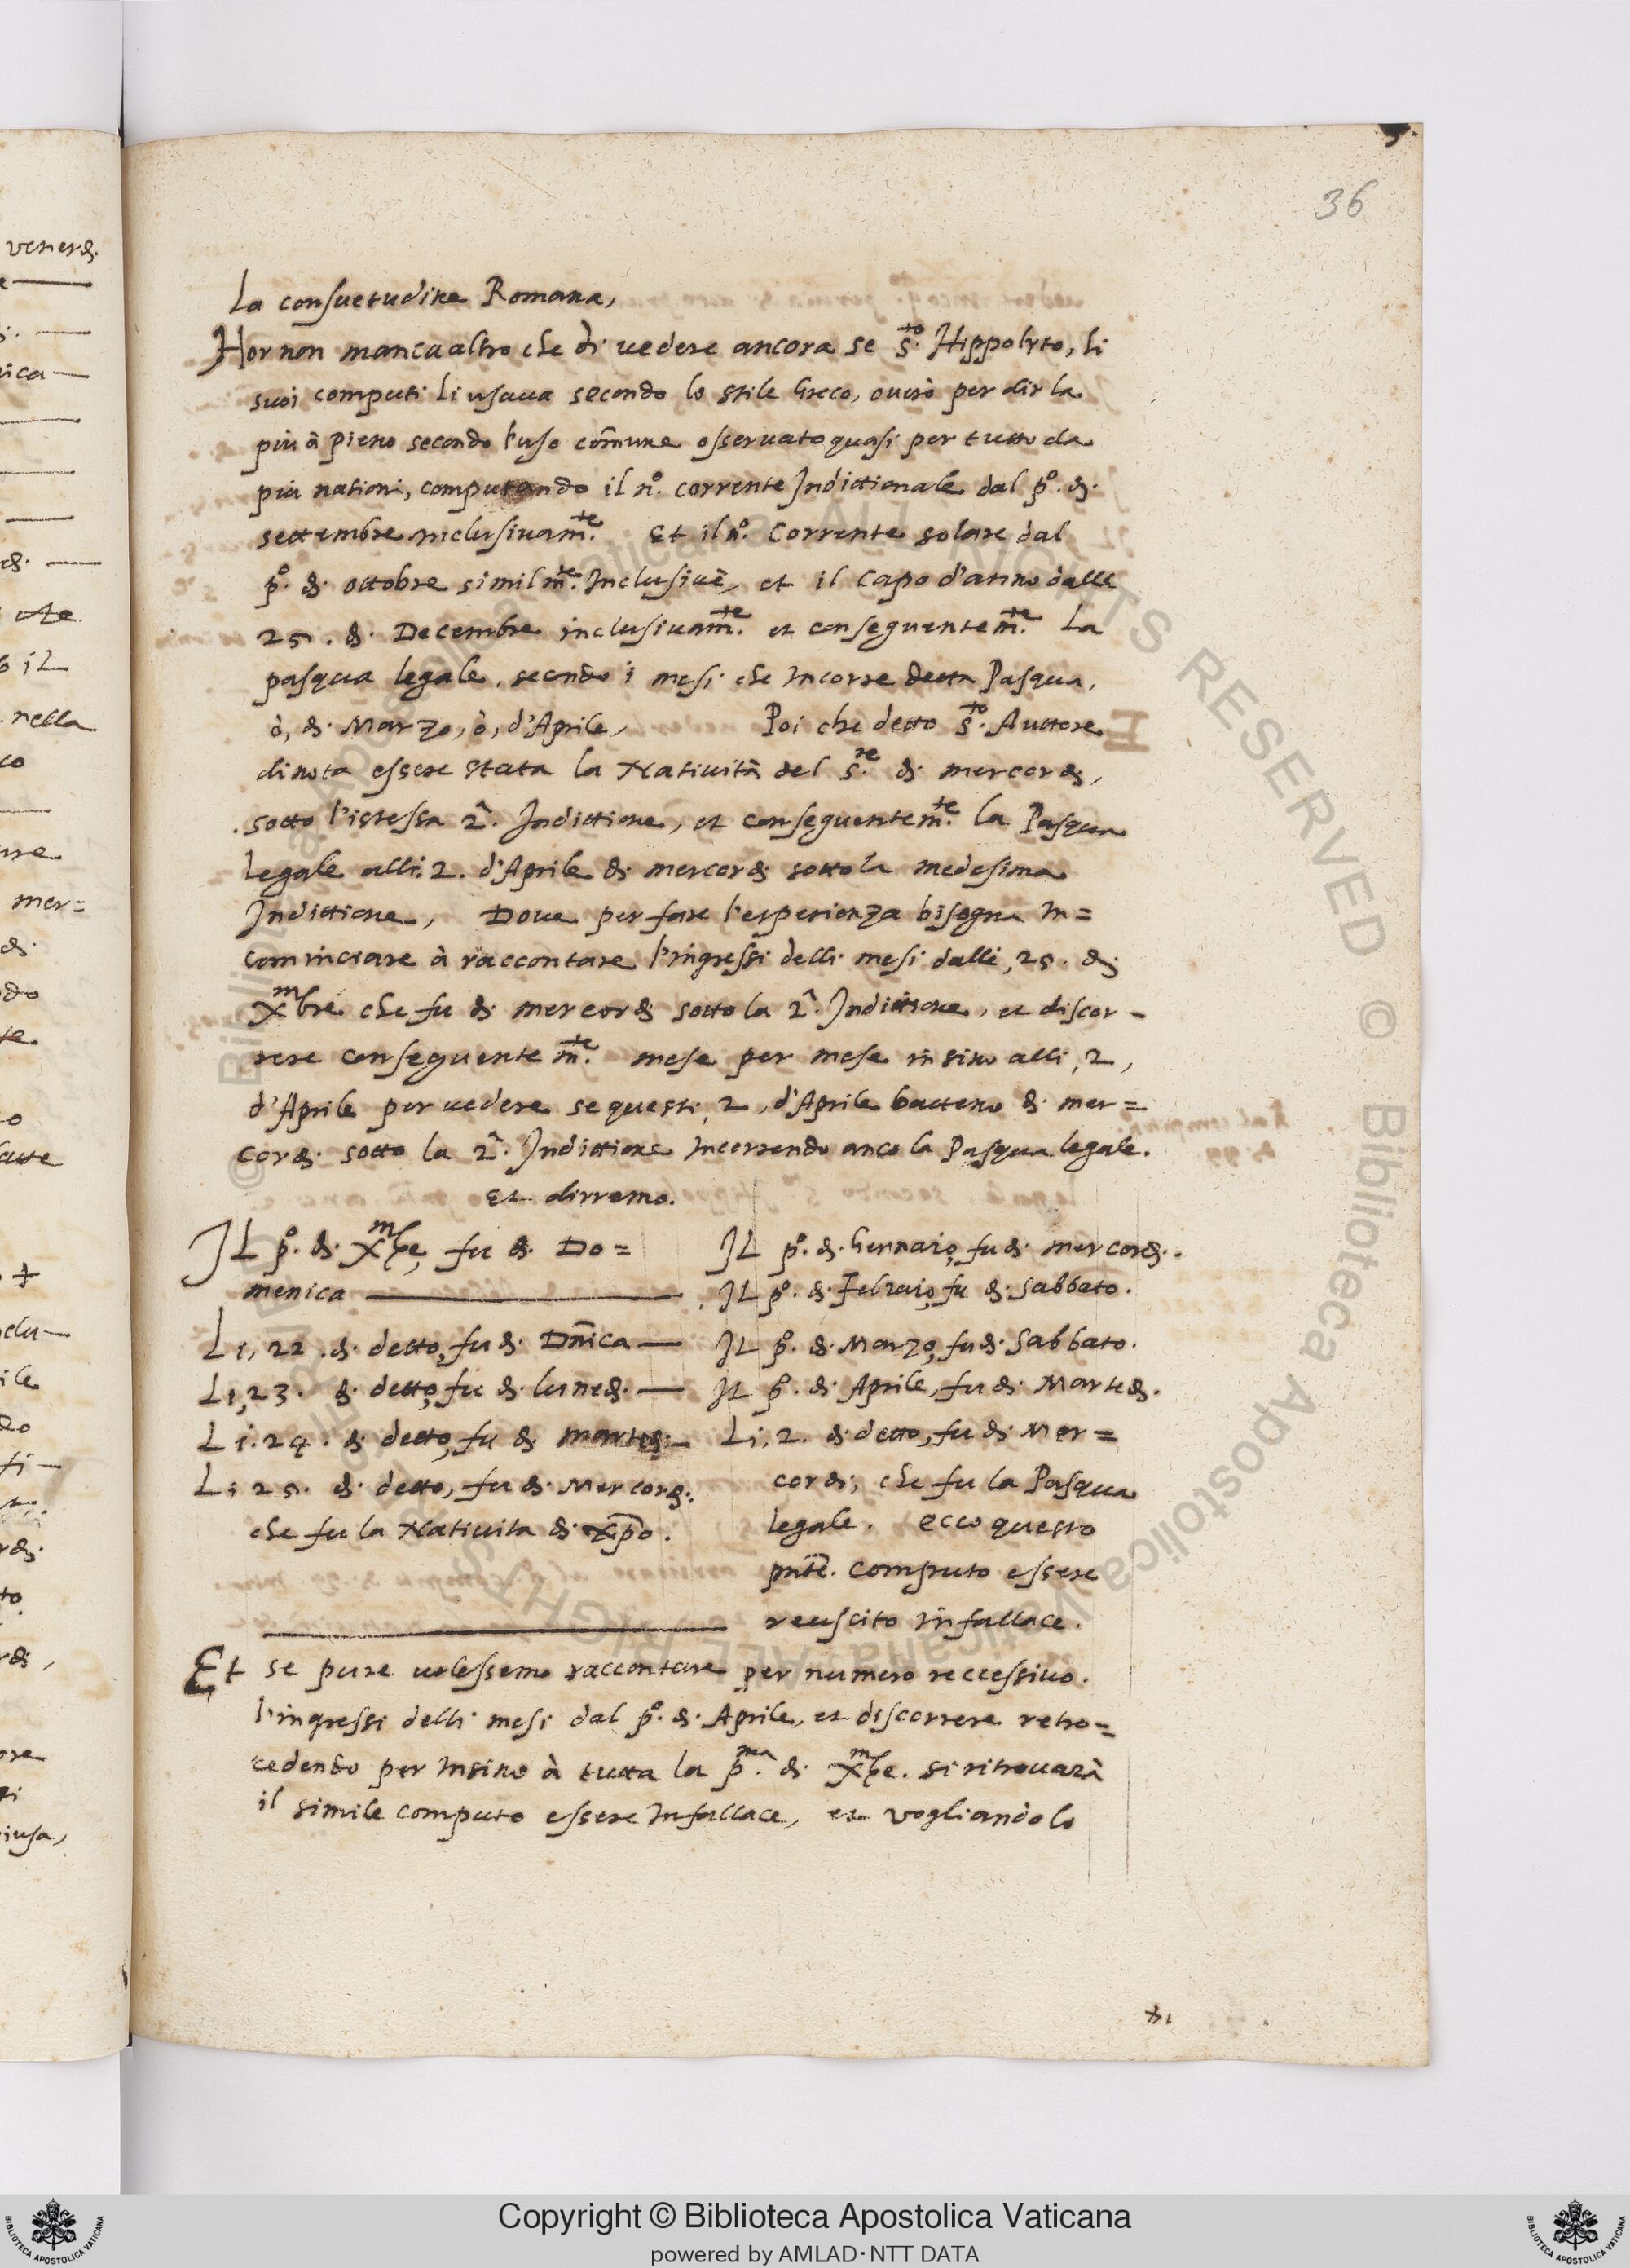 36
La consuetudine Romana,
Hor non manca altro che di vedere ancora se s.to Hippolyto, li
suoi computi li usaua secondo lo stile Greco, overo per dir la
più à pieno secondo l'uso cõmune osseruato quasi per tutto da
più nationi, computando il n.o corrente Indittionale dal p.o di
settembre inclusiuam.te Et il n.o corrente solare dal
p.o di ottobre similm.te Inclusiuè, et il capo d'anno dalle
25. di Decembre inclusiuam.te et conseguentem.te La
pasqua legale, secondo i mesi che incorre detta Pasqua,
ò, di Marzo, ò, d'Aprile, Poi che detto s.to Auttore
dinota essere stata la Natiuità del s.re di mercordi,
sotto l'istessa 2.a Indittione, et conseguentem.te la Pasqua
legale alli. 2. d'Aprile di mercordi sotto la medesima
Indittione, Doue per fare l'esperienza bisogna in=
cominciare à raccontare l'ingressi delli mesi dalli, 25. di
Xmbre che fu di mercordi sotto la 2.a Indittione, et discor-
rere conseguentem.te mese per mese insino alli, 2,
d'Aprile per uedere se questi, 2, d'Aprile batteno di mer=
cordi sotto la 2.a Indittione incorrendo anco la Pasqua legale.
Et dirremo.
IL p.o di Xmbre, fu di Do=
menica
Li, 22. di detto, fu di Dñica
Li, 23. di detto, fu di lunedi
Li. 24. di detto, fu di martedi
Li 25. di detto, fu di Mercordi.
che fu la Natiuita di Xp̃o.
IL p.o di Gennaio, fu di mercordi.
IL p.o di Febraio, fu di Sabbato.
IL p.o di Marzo, fu di Sabbato.
IL p.o di Aprile, fu di Martedi.
Li, 2. di detto, fu di Mer=
cordi, che fu la Pasqua
legale. Ecco questo
pñte. computo essere
reuscito infallace.
Et se pure uolessemo raccontare per numero reccessiuo.
l'ingressi delli mesi dal p.o di Aprile, et discorrere retro=
cedendo per insino à tutta la p.ma di Xmbre. si ritrouarà
il simile computo essere infallace, et vogliandolo
Copyright © Biblioteca Apostolica Vaticana
powered by AMLAD·NTT DATA